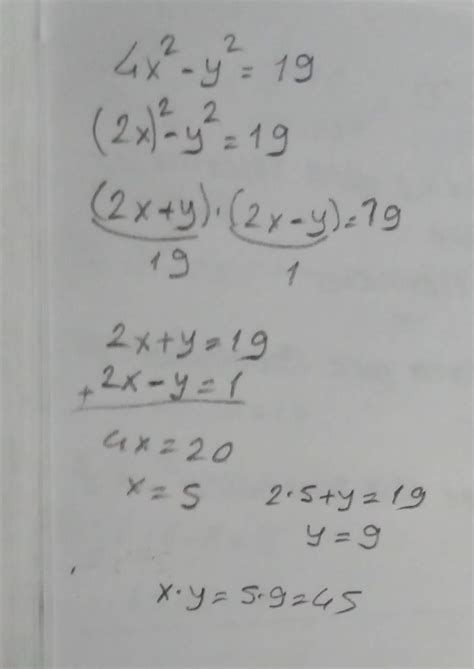 4x² - y² = 19
(2x)² - y² = 19
(2x+y)·(2x-y)=19
19 1
2x+y=19
+ 2x-y=1
4x=20
x=5 2·5+y=19
y=9
x·y=5·9=45